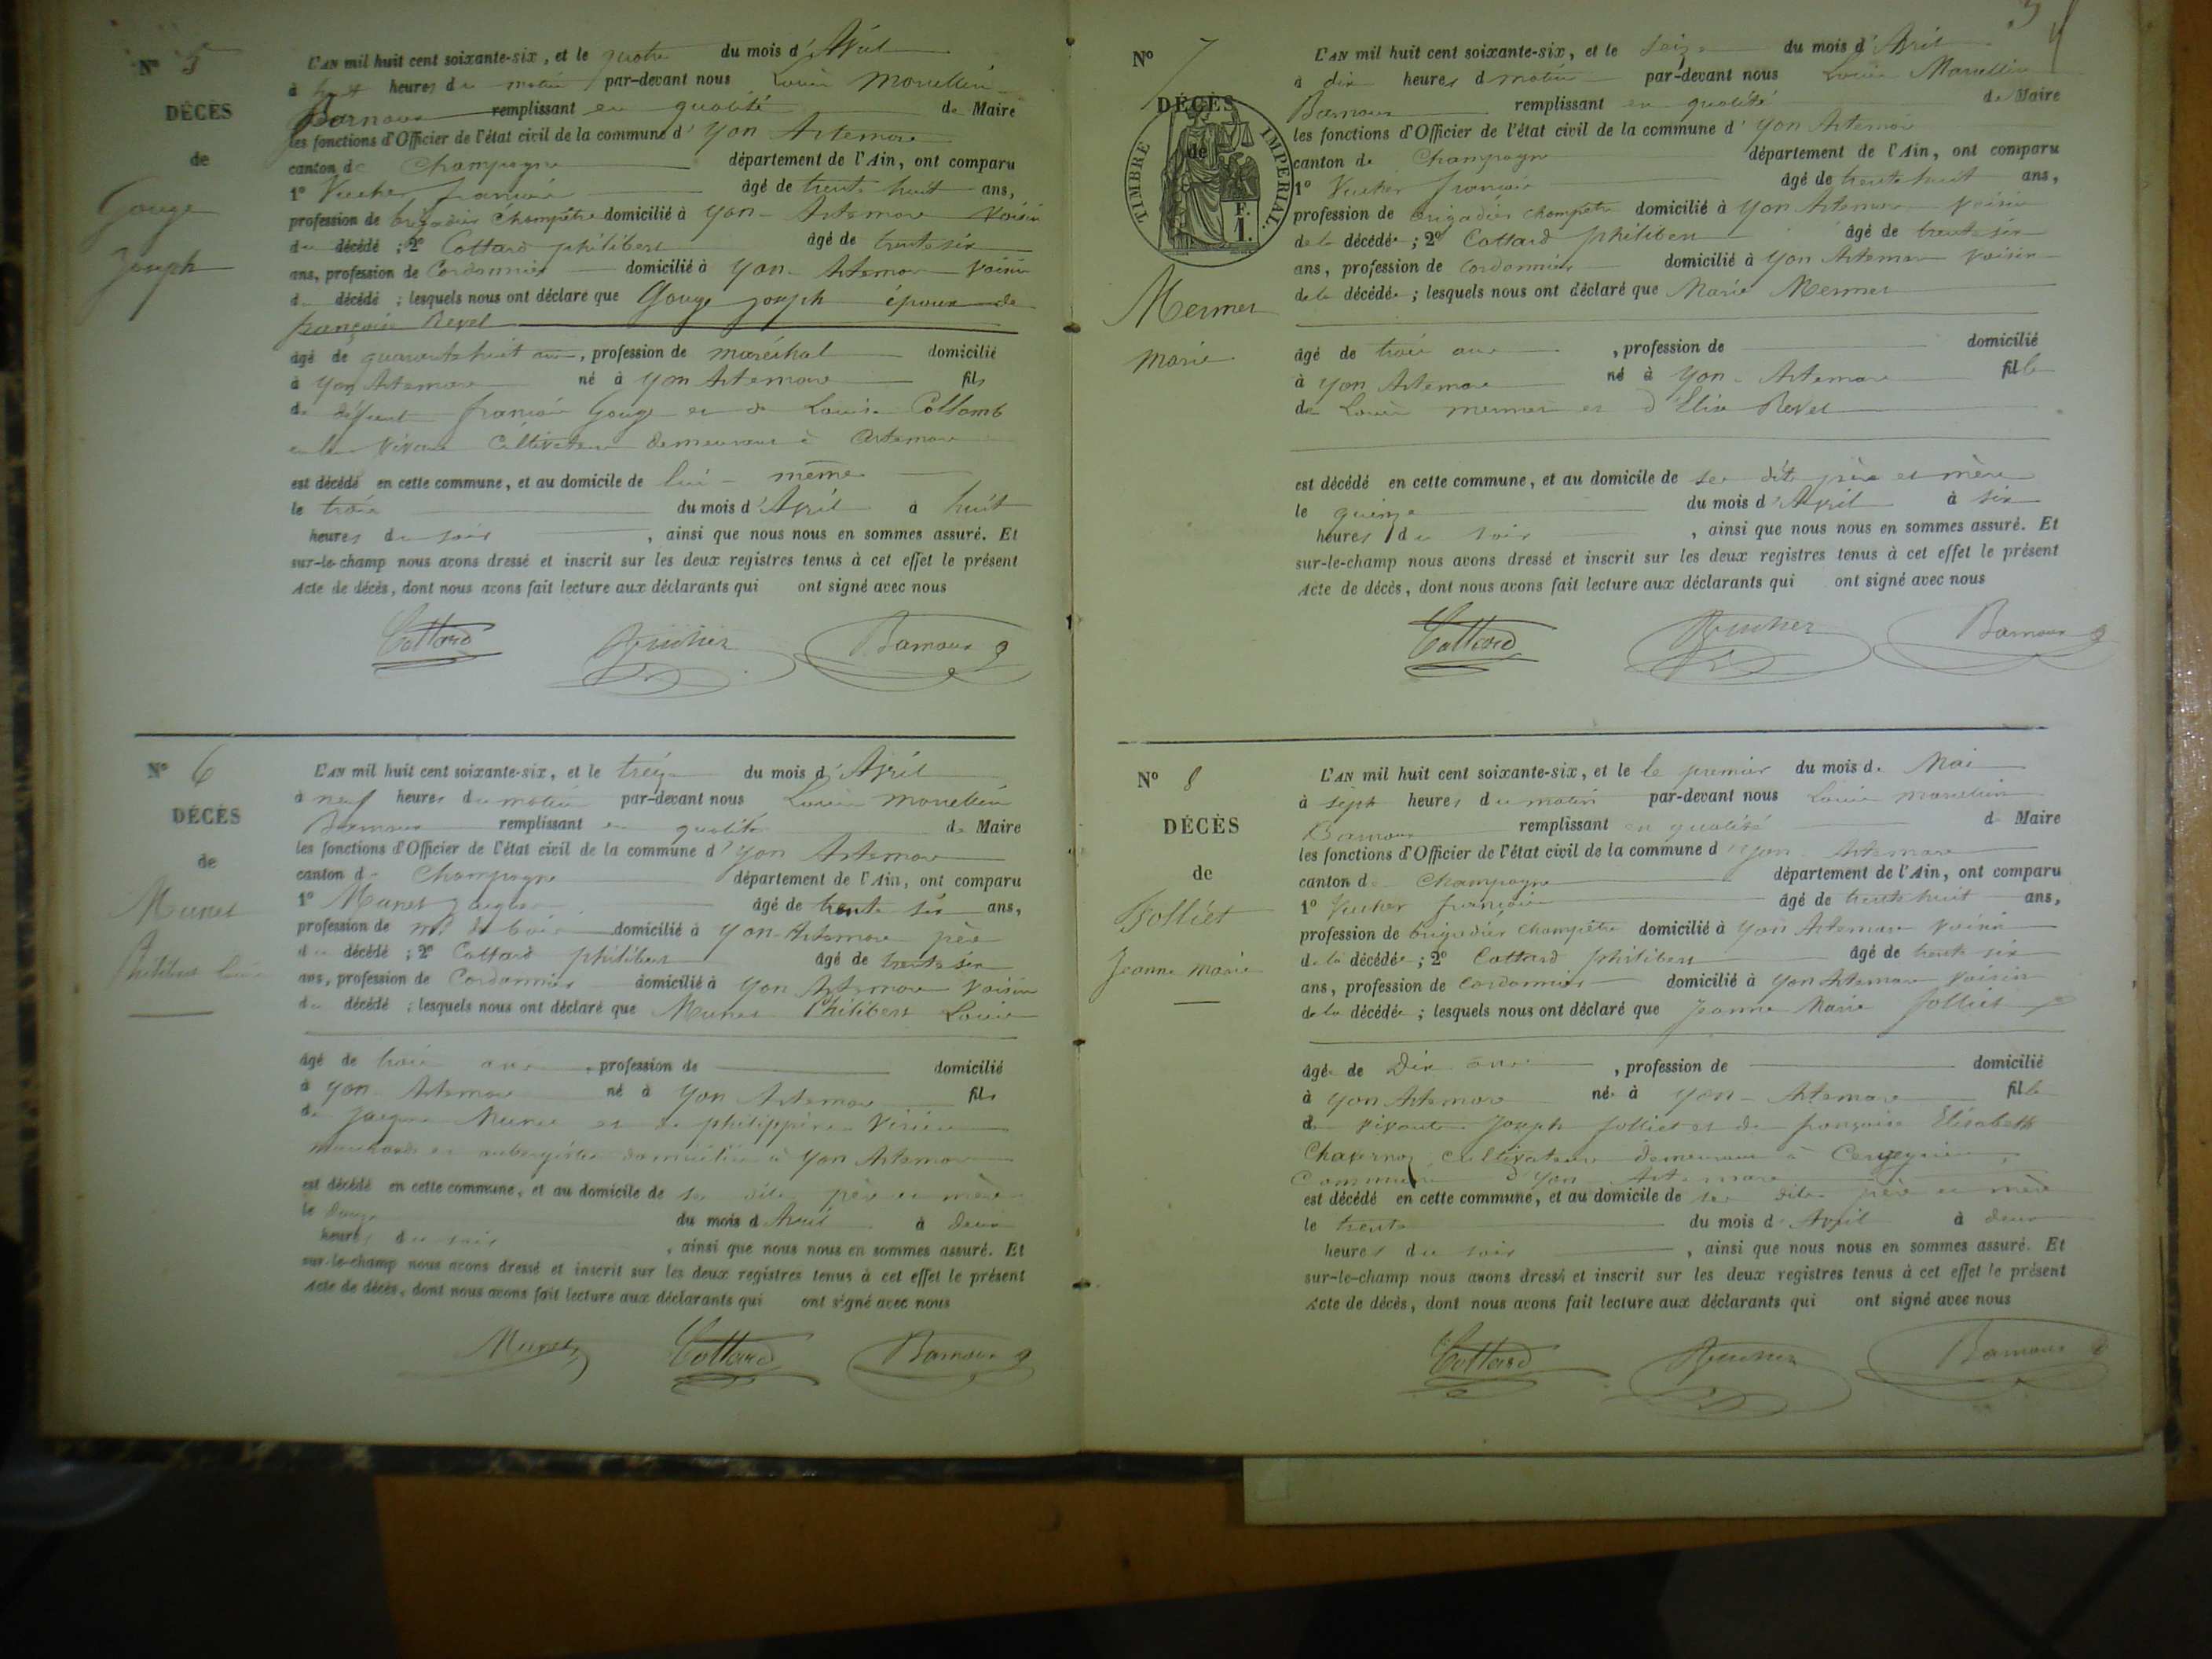 N° 5
DÉCÈS
de
Gouge
Joseph
L'AN mil huit cent soixante-six, et le quatre du mois d'Avril
à heures du matin par-devant nous Louis Marcellin
Barnoux remplissant en qualité de Maire
les fonctions d'Officier de l'état civil de la commune d'Yon Artemare
canton de Champagne département de l'Ain, ont comparu
1° Vucher françois âgé de trente huit ans,
profession de brigadier champêtre domicilié à Yon-Artemare voisin
du décédé ; 2° Cottard philibert âgé de trente six
ans, profession de Cordonnier domicilié à Yon-Artemare voisin
du décédé ; lesquels nous ont déclaré que Gouge joseph époux de
françoise Revel
âgé de quarante huit ans, profession de maréchal domicilié
à Yon Artemare né à Yon Artemare fils
de défunt françois Gouge et de Louise Collomb
en leur vivant Cultivateurs demeurant à Artemare
est décédé en cette commune, et au domicile de lui-même
le trois du mois d'Avril à huit
heures du soir, ainsi que nous nous en sommes assuré. Et
sur-le-champ nous avons dressé et inscrit sur les deux registres tenus à cet effet le présent
Acte de décès, dont nous avons fait lecture aux déclarants qui ont signé avec nous
Cottard Vucher Barnoux
N° 6
DÉCÈS
de
Munet
Philibert Louis
L'AN mil huit cent soixante-six, et le treize du mois d'Avril
à neuf heures du matin par-devant nous Louis Marcellin
Barnoux remplissant en qualité de Maire
les fonctions d'Officier de l'état civil de la commune d'Yon Artemare
canton de Champagne département de l'Ain, ont comparu
1° Munet Jacques âgé de trente six ans,
profession de md de bois domicilié à Yon-Artemare père
du décédé ; 2° Cottard philibert âgé de trente six
ans, profession de Cordonnier domicilié à Yon Artemare voisin
du décédé ; lesquels nous ont déclaré que Munet Philibert Louis
âgé de trois ans, profession de domicilié
à Yon-Artemare né à Yon Artemare fils
de Jacques Munet et de philippine
marchands et aubergistes domiciliés à Yon Artemare
est décédé en cette commune, et au domicile de ses dits père et mère
le douze du mois d'Avril à deux
heures du soir, ainsi que nous nous en sommes assuré. Et
sur-le-champ nous avons dressé et inscrit sur les deux registres tenus à cet effet le présent
Acte de décès, dont nous avons fait lecture aux déclarants qui ont signé avec nous
Munet Cottard Barnoux
N° 7
DÉCÈS
de
TIMBRE IMPERIAL
F.
1.
Mermet
Marie
L'AN mil huit cent soixante-six, et le seize du mois d'Avril
à dix heures d matin par-devant nous Louis Marcellin
Barnoux remplissant en qualité de Maire
les fonctions d'Officier de l'état civil de la commune d'Yon Artemare
canton de Champagne département de l'Ain, ont comparu
1° Vucher françois âgé de trente huit ans,
profession de brigadier champêtre domicilié à Yon Artemare voisin
de la décédée ; 2° Cottard philibert âgé de trente six
ans, profession de cordonnier domicilié à Yon Artemare voisin
de la décédée ; lesquels nous ont déclaré que Marie Mermet
âgé de trois ans, profession de domicilié
à Yon Artemare né à Yon-Artemare fille
de Louis mermet et d'Elise Revel
est décédé en cette commune, et au domicile de ses dits père et mère
le quinze du mois d'Avril à six
heures du soir, ainsi que nous nous en sommes assuré. Et
sur-le-champ nous avons dressé et inscrit sur les deux registres tenus à cet effet le présent
Acte de décès, dont nous avons fait lecture aux déclarants qui ont signé avec nous
Cottard Vucher Barnoux
N° 8
DÉCÈS
de
Folliet
Jeanne Marie
L'AN mil huit cent soixante-six, et le le premier du mois de Mai
à sept heures du matin par-devant nous Louis Marcellin
Barnoux remplissant en qualité d Maire
les fonctions d'Officier de l'état civil de la commune d'Yon-Artemare
canton de Champagne département de l'Ain, ont comparu
1° Vucher françois âgé de trente huit ans,
profession de brigadier champêtre domicilié à Yon Artemare voisin
de la décédée ; 2° Cottard philibert âgé de trente six
ans, profession de cordonnier domicilié à Yon Artemare voisin
de la décédée ; lesquels nous ont déclaré que Jeanne Marie folliet
âgée de Dix ans, profession de domicilié
à Yon Artemare née à Yon-Artemare fille
de vivants Joseph folliet et de françoise Elisabeth
Chavernoz cultivateurs demeurant à
Commune d'Yon-Artemare
est décédé en cette commune, et au domicile de ses dits père et mère
le trente du mois d'Avril à deux
heures du soir, ainsi que nous nous en sommes assuré. Et
sur-le-champ nous avons dressé et inscrit sur les deux registres tenus à cet effet le présent
Acte de décès, dont nous avons fait lecture aux déclarants qui ont signé avec nous
Cottard Vucher Barnoux